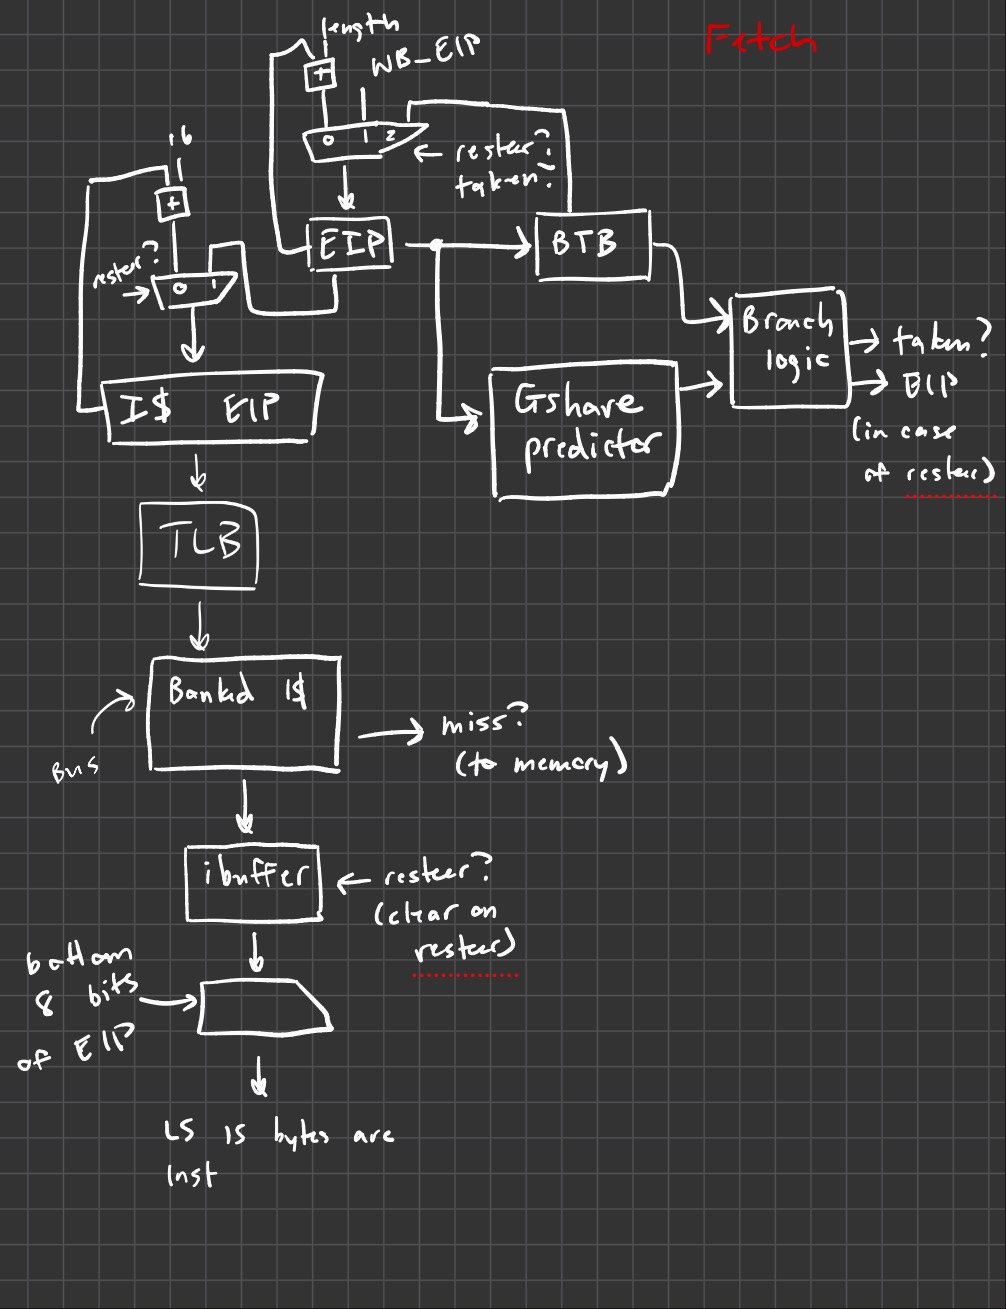 Fetch
length
+
WB_EIP
0 1 2
← resteer?
taken?
16
+
resteer?
0 1
EIP
BTB
Branch
logic
taken?
EIP
(in case
of resteer)
Gshare
predictor
I$ EIP
TLB
Banked I$
Bus
miss?
(to memory)
ibuffer
resteer?
(clear on
resteer)
bottom
8 bits
of EIP
LS 15 bytes are
inst